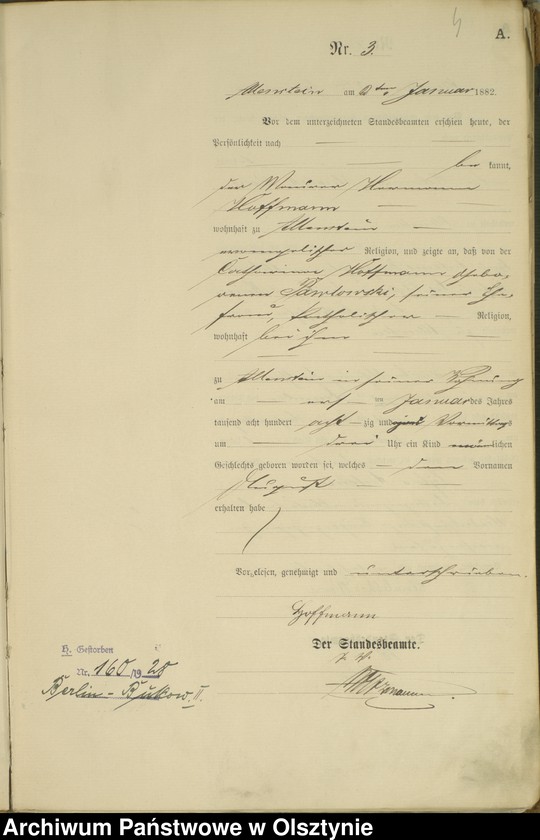 4
A.
Nr. 3.
Allenstein am 2ten Januar 1882.
Vor dem unterzeichneten Standesbeamten erschien heute, der
Persönlichkeit nach
bekannt,
der Maurer Hermann
Hoffmann
wohnhaft zu Allenstein
evangelischer Religion, und zeigte an, daß von der
Catharina Hoffmann gebo-
renen Pawlowski, seiner Ehe-
frau, katholischer Religion,
wohnhaft bei ihm
zu Allenstein in seiner Wohnung
am ersten Januar des Jahres
tausend acht hundert achtzig und zwei Vormittags
um drei Uhr ein Kind männlichen
Geschlechts geboren worden sei, welches den Vornamen
August
erhalten habe
Vorgelesen, genehmigt und unterschrieben.
Hoffmann
Der Standesbeamte.
H. Gestorben
Nr. 160/1928
Berlin-Bukow. II.
Archiwum Państwowe w Olsztynie